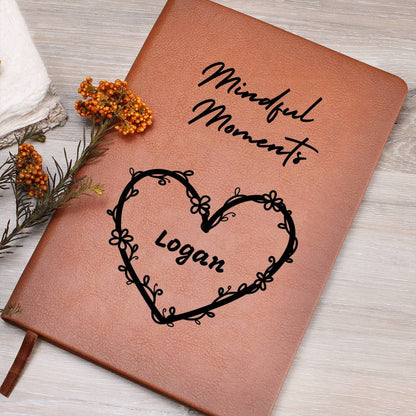 Mindful
Moments
Logan